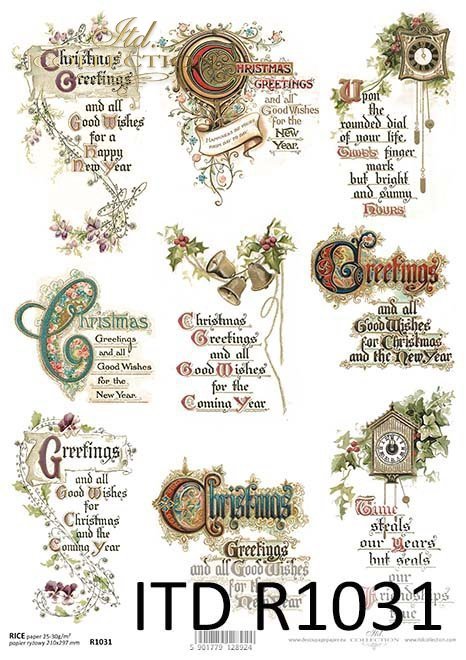 Itd.
COLLECTION
Christmas
Greetings
and all
Good Wishes
for a
Happy
New Year
CHRISTMAS
GREETINGS
and all
Good Wishes
for the
New
Year.
HAPPINESS BE YOURS
FROM DAY TO DAY.
Upon
the
rounded dial
of your life,
Time's finger
mark
but bright
and sunny
Hours
Christmas
Greetings
and all
Good Wishes
for the
New Year.
Christmas
Greetings
and all
Good Wishes
for the
Coming Year
Greetings
and all
Good Wishes
for Christmas
and the New Year
Greetings
and all
Good Wishes
for
Christmas
and the
Coming Year
Christmas
Greetings
and all
Good Wishes
for the
New Year
Time
steals
our Years
but seals
our
Friendships
True
ITD R1031
RICE paper 25-30g/m²
papier ryżowy 210x297 mm R1031
5 901779 128924
www.decoupagepaper.eu
www.itdcollection.com